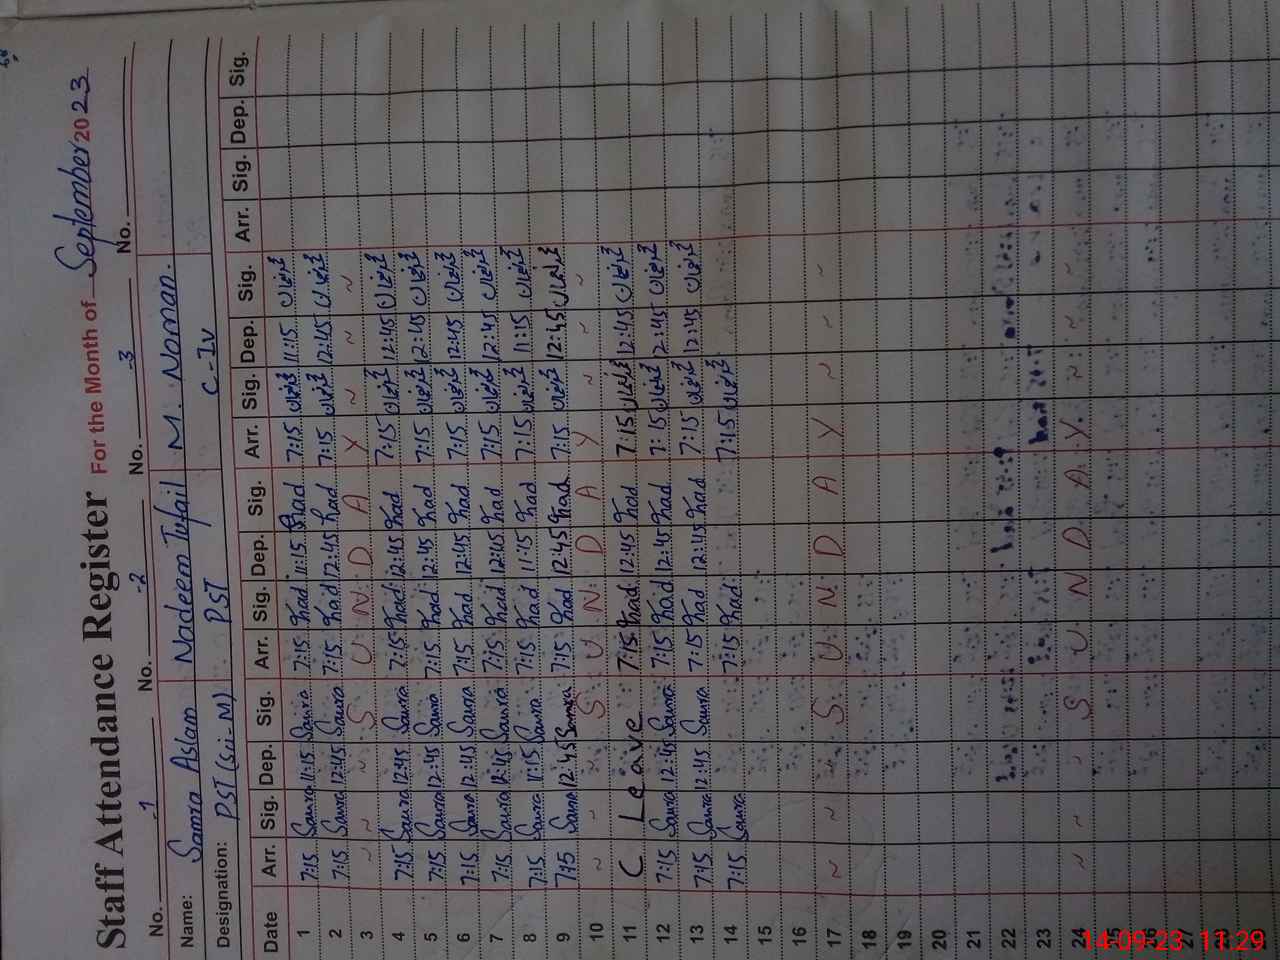 Staff Attendance Register For the Month of September 2023
No. 1 No. 2 No. 3 No.
Name: Samra Aslam Nadeem Tufail M. Noman.
Designation: PST (Sci-M) PST C-IV
Date Arr. Sig. Dep. Sig. Arr. Sig. Dep. Sig. Arr. Sig. Dep. Sig. Arr. Sig. Dep. Sig.
1 7:15 Samra 11:15 Samra 7:15 11:15 7:15 11:15
2 7:15 Samra 12:45 Samra 7:15 12:45 7:15 12:45
3 ~ ~ ~ S U N D A Y ~ ~ ~
4 7:15 Samra 12:45 Samra 7:15 12:45 7:15 12:45
5 7:15 Samra 12:45 Samra 7:15 12:45 7:15 12:45
6 7:15 Samra 12:45 Samra 7:15 12:45 7:15 12:45
7 7:15 Samra 12:45 Samra 7:15 12:45 7:15 12:45
8 7:15 Samra 11:15 Samra 7:15 11:15 7:15 11:15
9 7:15 Samra 12:45 Samra 7:15 12:45 7:15 12:45
10 ~ ~ ~ S U N D A Y ~ ~ ~
11 C Leave 7:15 12:45 7:15 12:45
12 7:15 Samra 12:45 Samra 7:15 12:45 7:15 12:45
13 7:15 Samra 12:45 Samra 7:15 12:45 7:15 12:45
14 7:15 Samra 7:15 7:15
15
16
17 ~ ~ ~ S U N D A Y ~ ~ ~
18
19
20
21
22
23
24 ~ ~ ~ S U N D A Y ~ ~ ~
25
26
27
28
14-09-23 11:29